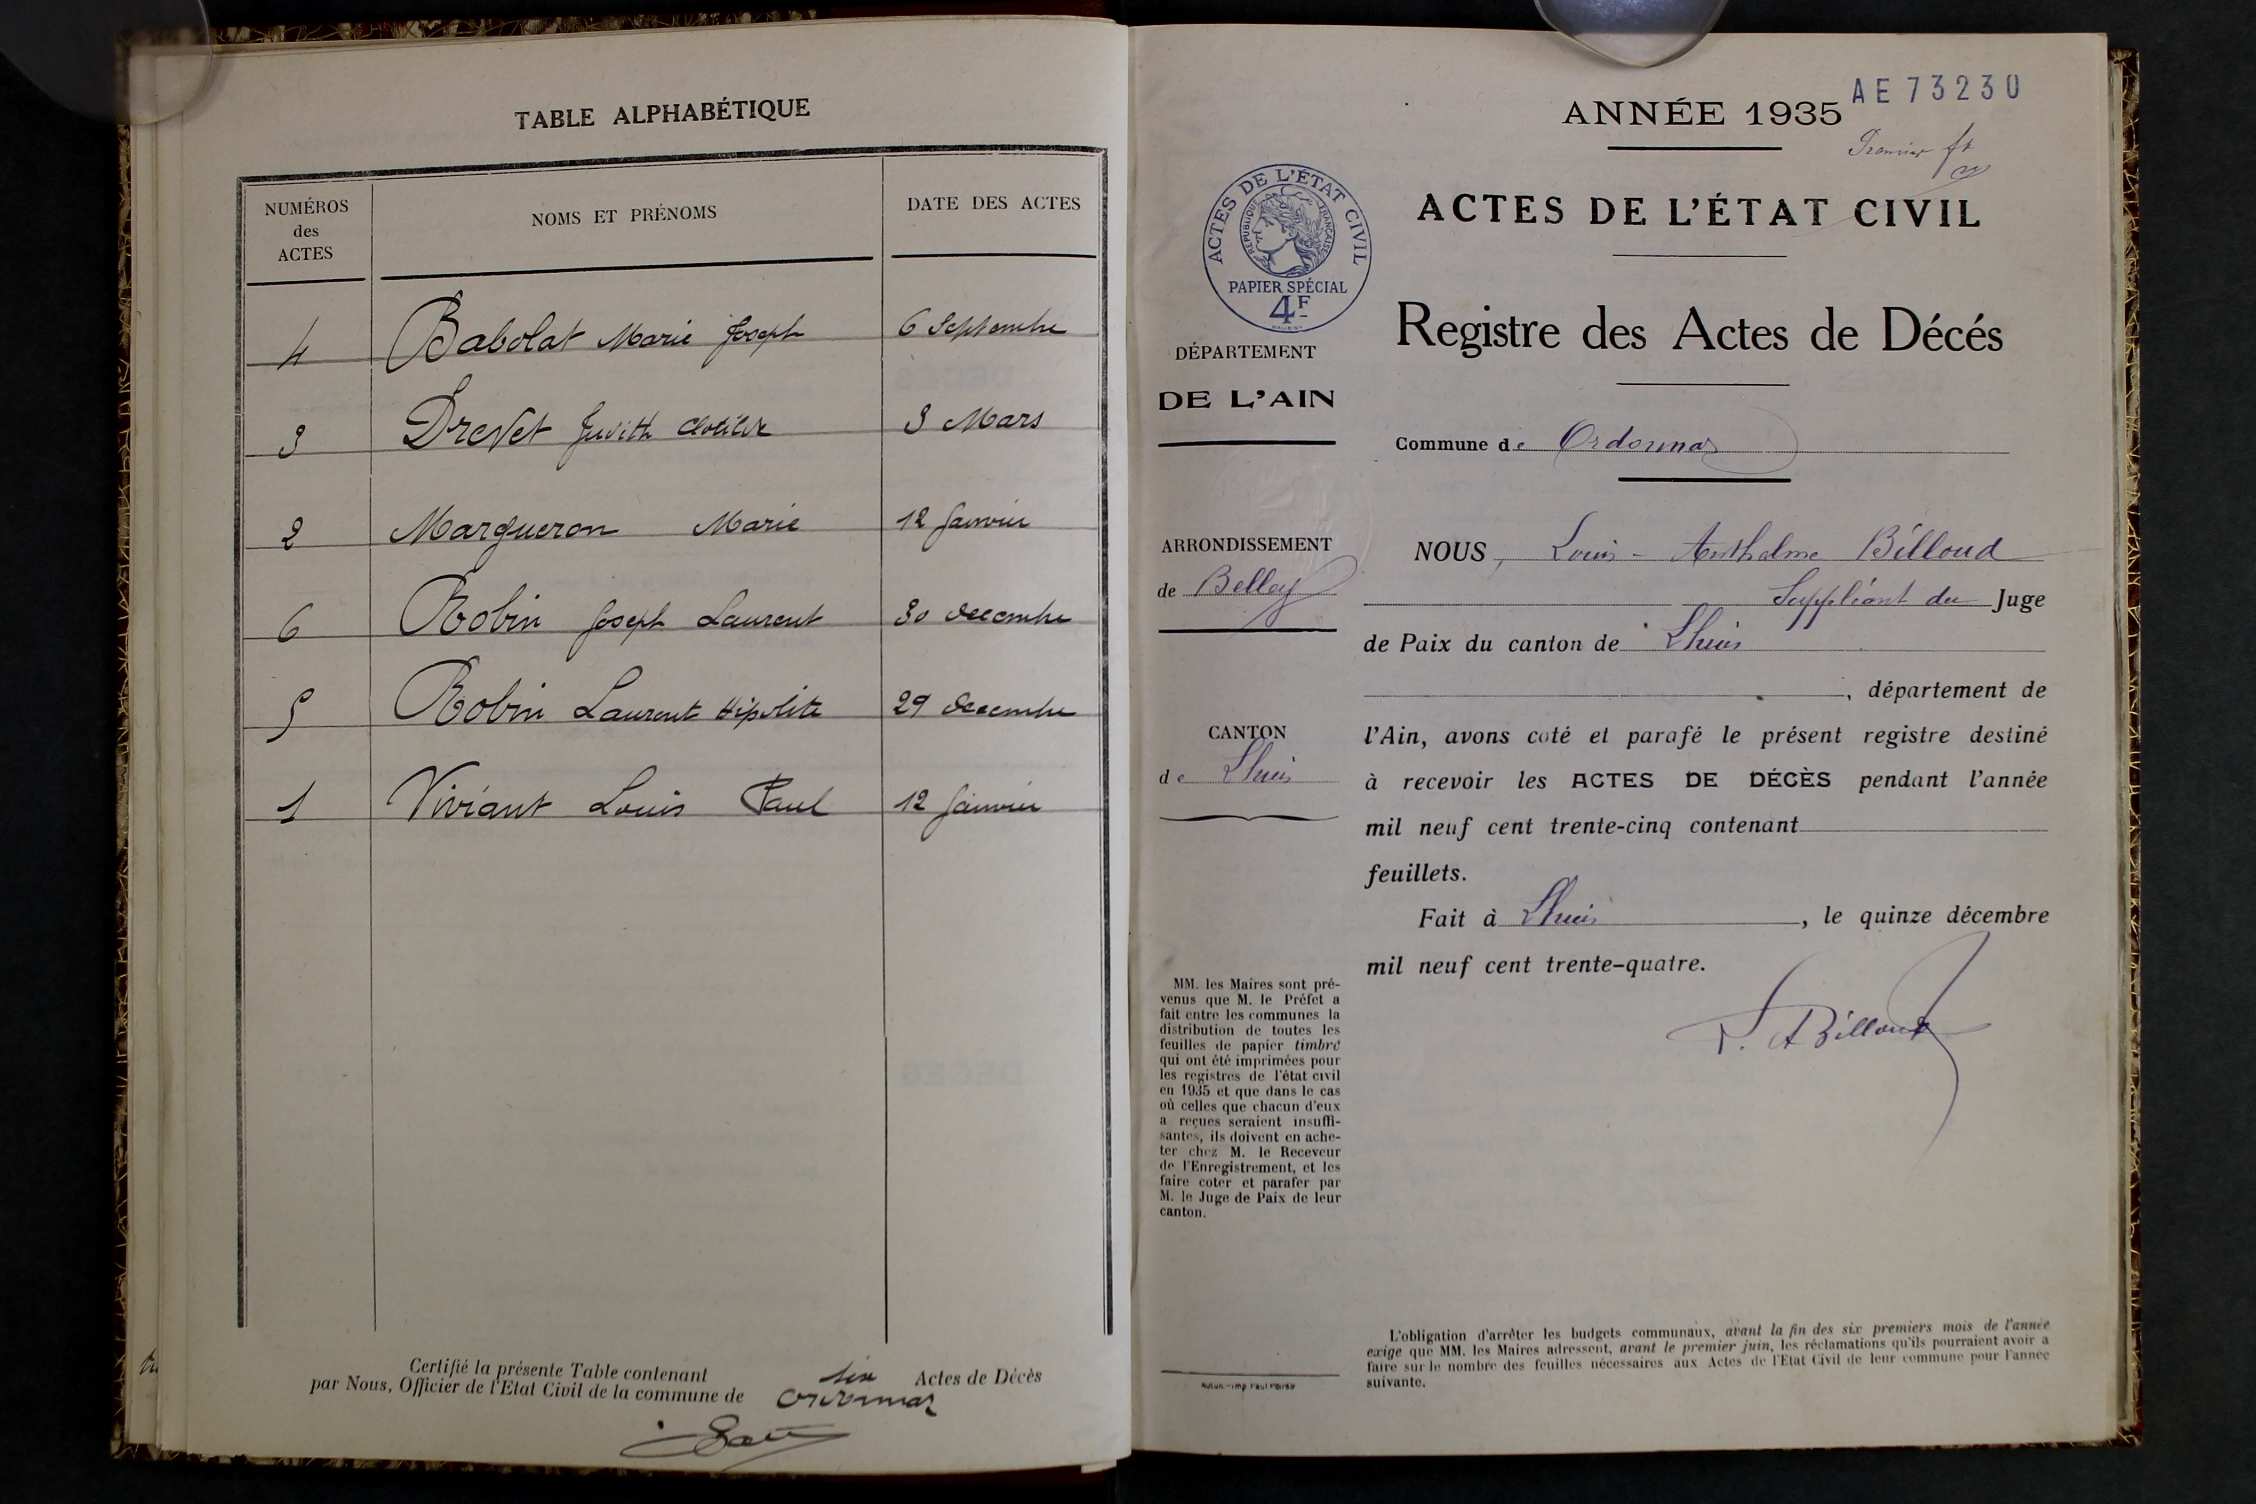 TABLE ALPHABÉTIQUE
NUMÉROS des ACTES
NOMS ET PRÉNOMS
DATE DES ACTES
4 Babolat Marie Joseph 6 Septembre
3 Drevet Judith Clotilde 3 Mars
2 Margueron Marie 12 Janvier
6 Robin Joseph Laurent 30 decembre
5 Robin Laurent Hipolite 29 decembre
1 Viviant Louis Paul 12 Janvier
Certifié la présente Table contenant six Actes de Décès
par Nous, Officier de l'Etat Civil de la commune de Ordonnaz
AE 73230
ANNÉE 1935
Premier ft
ACTES DE L'ÉTAT CIVIL
ACTES DE L'ÉTAT CIVIL
RÉPUBLIQUE FRANÇAISE
PAPIER SPÉCIAL
4F
Registre des Actes de Décés
DÉPARTEMENT
DE L'AIN
Commune de Ordonnaz
ARRONDISSEMENT
de Belley
CANTON
de Lhuis
NOUS, Louis-Anthelme Billoud
Suppléant du Juge
de Paix du canton de Lhuis
, département de
l'Ain, avons coté et parafé le présent registre destiné
à recevoir les ACTES DE DÉCÈS pendant l'année
mil neuf cent trente-cinq contenant
feuillets.
Fait à Lhuis, le quinze décembre
mil neuf cent trente-quatre.
L. A Billoud
MM. les Maires sont pré-
venus que M. le Préfet a
fait entre les communes la
distribution de toutes les
feuilles de papier timbré
qui ont été imprimées pour
les registres de l'état civil
en 1935 et que dans le cas
où celles que chacun d'eux
a reçues seraient insuffi-
santes, ils doivent en ache-
ter chez M. le Receveur
de l'Enregistrement, et les
faire coter et parafer par
M. le Juge de Paix de leur
canton.
L'obligation d'arrêter les budgets communaux, avant la fin des six premiers mois de l'année
exige que MM. les Maires adressent, avant le premier juin, les réclamations qu'ils pourraient avoir à
faire sur le nombre des feuilles nécessaires aux Actes de l'Etat Civil de leur commune pour l'année
suivante.